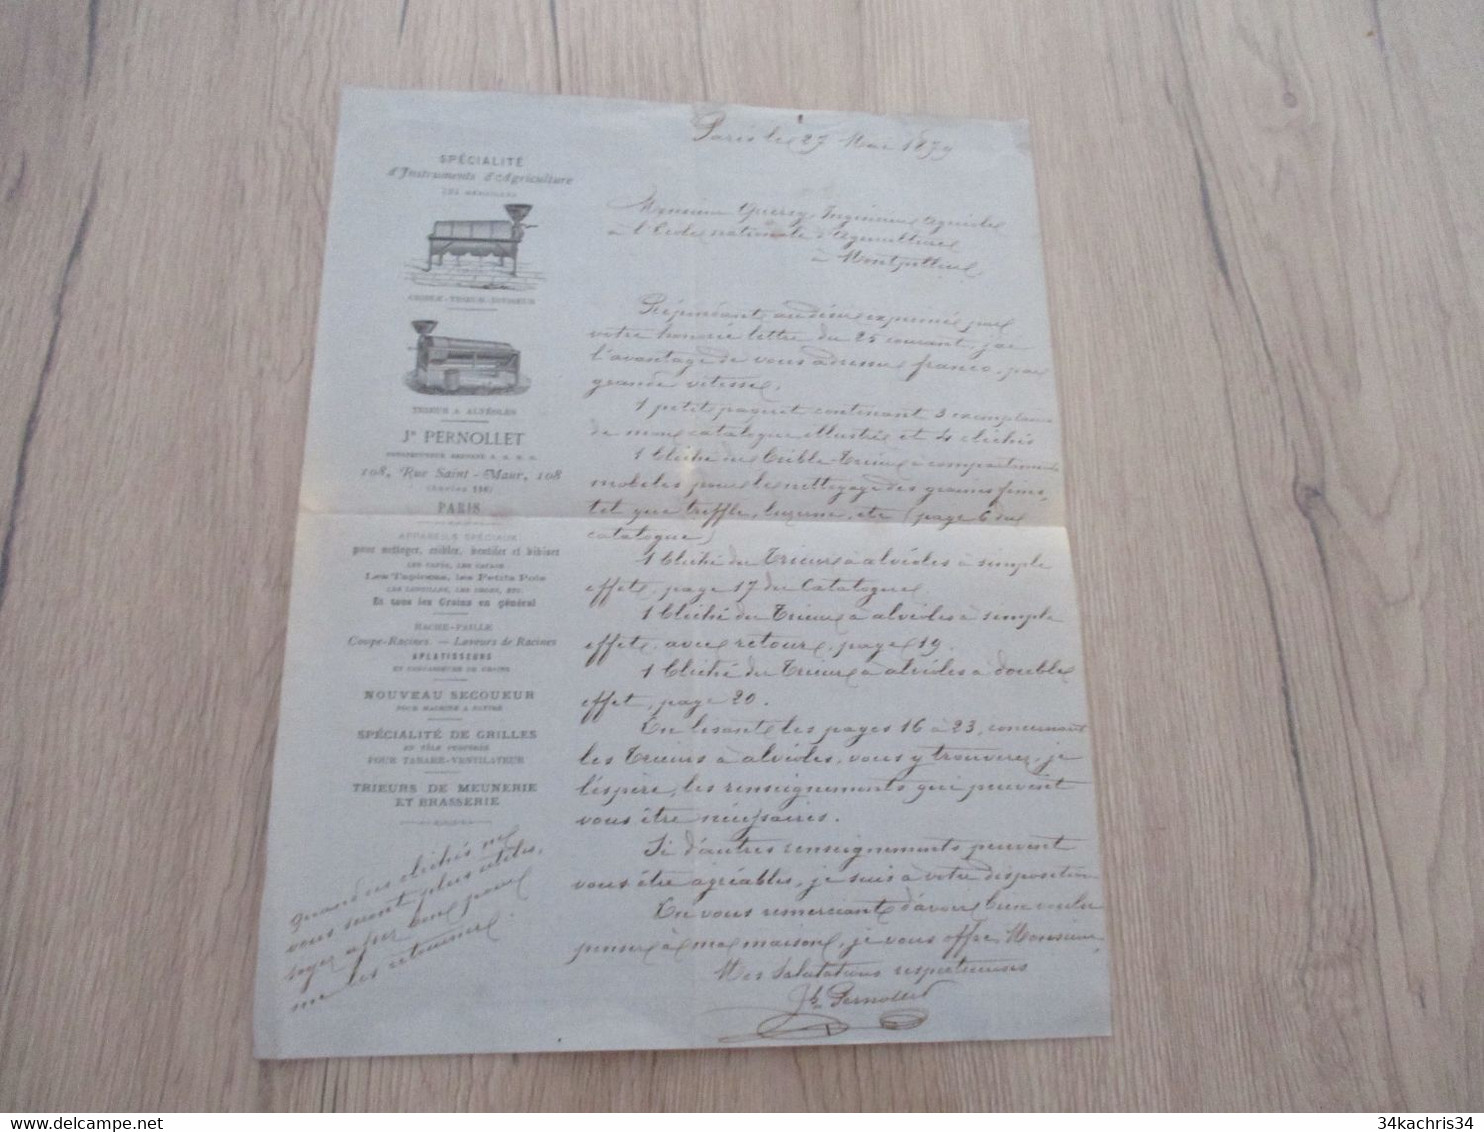 Paris le 27 Mai 1879
SPÉCIALITÉ
d'Instruments d'Agriculture
CRIBLE-TRIEUR-DIVISEUR
TRIEUR A ALVÉOLES
Jn PERNOLLET
108, Rue Saint-Maur, 108
PARIS
APPAREILS SPÉCIAUX
pour nettoyer, cribler, ventiler et
LES CAFÉS, LES CACAOS
Les Tapiocas, les Petits Pois
LES LENTILLES, LES ORGES, ETC.
Et tous les Grains en général
HACHE-PAILLE
Coupe-Racines. — Laveurs de Racines
APLATISSEURS
ET CONCASSEURS DE GRAINS
NOUVEAU SECOUEUR
POUR MACHINE A BATTRE
SPÉCIALITÉ DE GRILLES
EN TÔLE PERFORÉE
POUR TARARE-VENTILATEUR
TRIEURS DE MEUNERIE
ET BRASSERIE
Monsieur Quercy Ingénieur Agricole
à l'Ecole nationale d'Agriculture
à Montpellier
Répondant au désir exprimé par
votre honorée lettre du 25 courant, j'ai
l'avantage de vous adresser franco, par
grande vitesse.
1 petit paquet contenant 3 exemplaires
de mon catalogue illustré et 4 clichés
1 Cliché du Crible-Trieur à compartiments
mobiles pour le nettoyage des graines fines,
tel que trèffle, luzerne, etc (page 6 du
catalogue)
1 Cliché du Trieur à alvéoles à simple
effet, page 17 du Catalogue
1 Cliché du Trieur à alvéoles à simple
effet avec retour, page 19.
1 Cliché du Trieur à alvéoles à double
effet, page 20.
En lisant les pages 16 à 23, concernant
les Trieurs à alvéoles, vous y trouverez, je
l'éspère, les renseignements qui peuvent
vous être nécessaires.
Si d'autres renseignements peuvent
vous être agréables, je suis à votre disposition
En vous remerciant d'avoir bien voulu
penser à ma maison, je vous offre, Monsieur,
Mes Salutations respectueuses
Jh Pernollet
Quand ces clichés ne
vous seront plus utiles,
soyez assez bon pour
me les retourner.
34kachris34